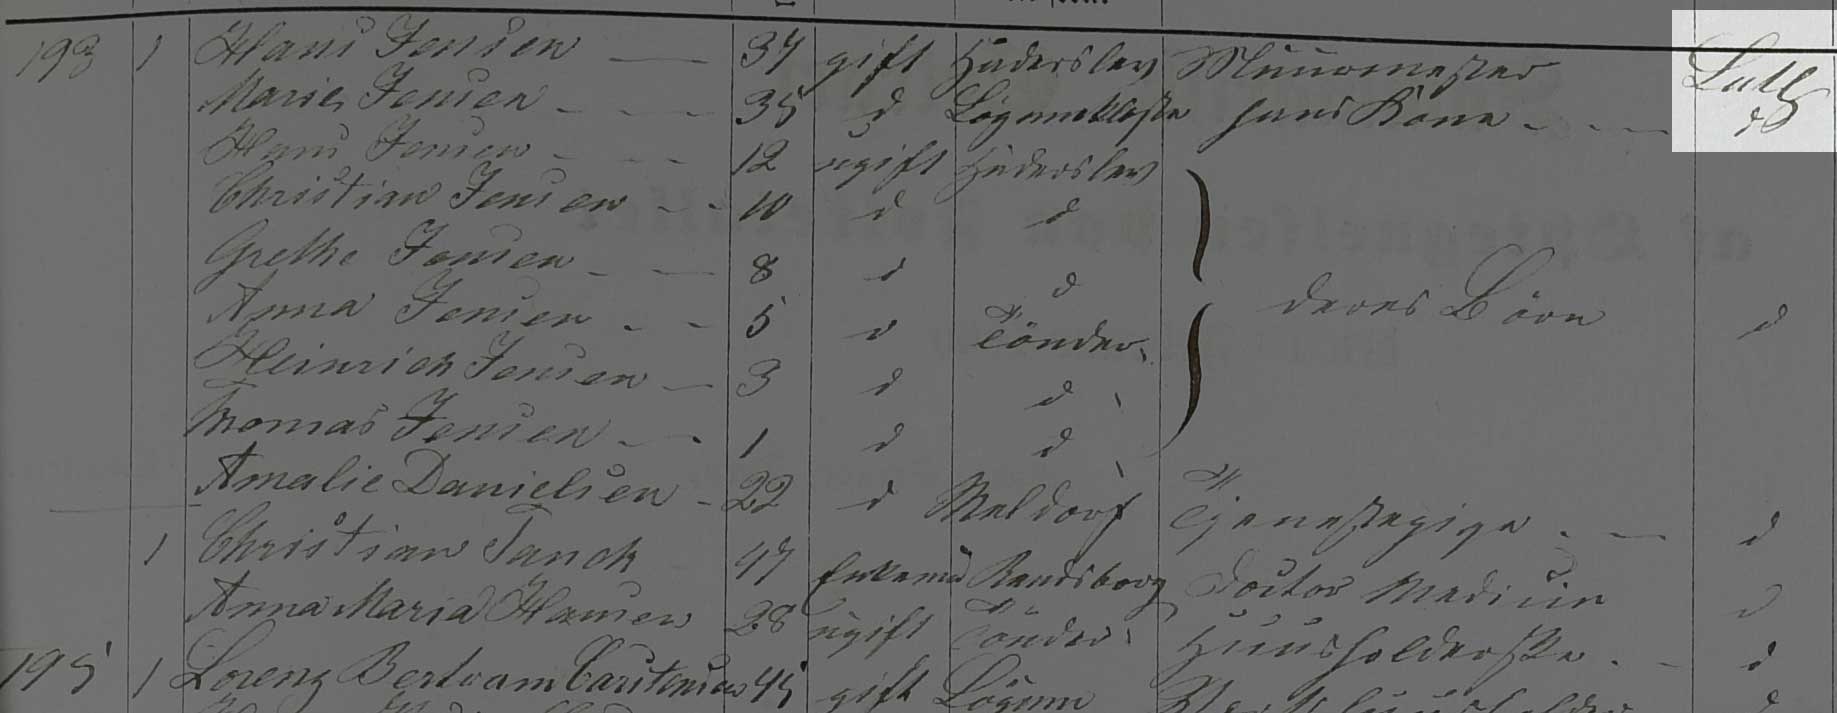 193 1 Hans Jensen 37 gift Haderslev Muurmester Luth
Marie Jensen 35 d Løgumkloster hans Kone d
Hans Jensen 12 ugift Haderslev
Christian Jensen 10 d d
Grethe Jensen 8 d d
Anna Jensen 5 d Tönder deres Börn d
Heinrich Jensen 3 d d
Thomas Jensen 1 d d
Amalie Danielsen 22 d Meldorf Tjenestepige d
1 Christian Tanck 47 Enkemd Rendsborg Doctor Medicin d
Anna Maria Hansen 28 ugift Tönder Huusholderske d
195 1 Lorenz Bertram Carstensen 45 gift Lögum